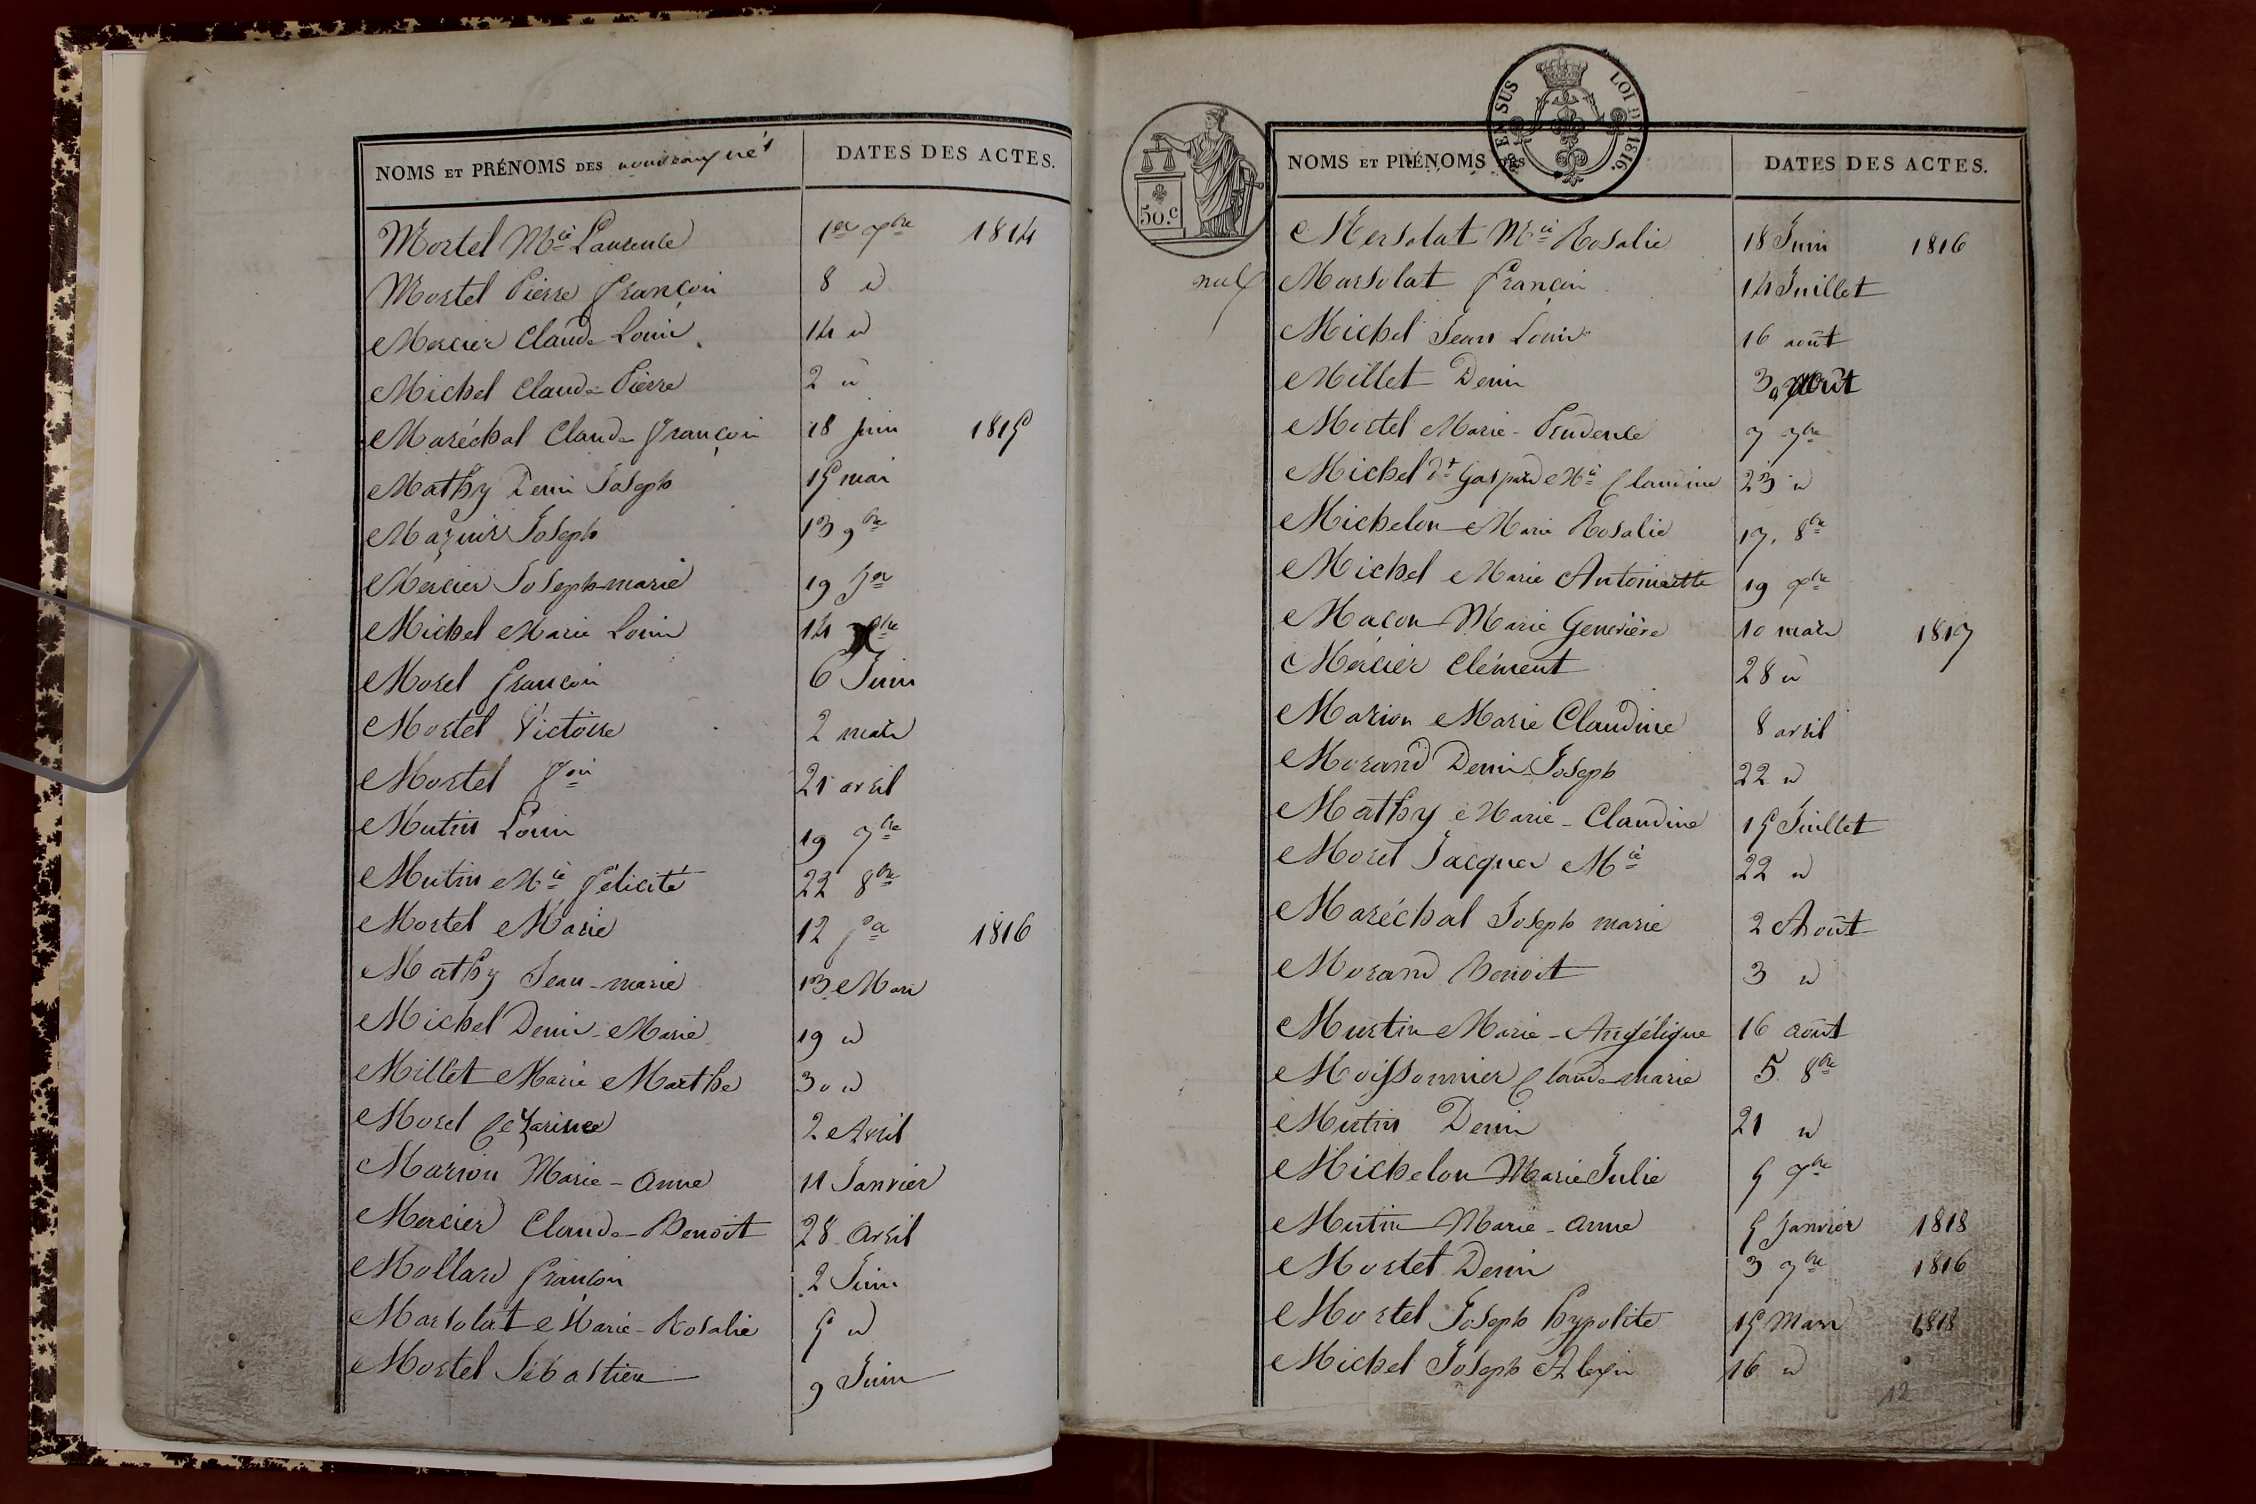 NOMS ET PRÉNOMS DES nouveaux nés DATES DES ACTES.
Mortel Mie Laurence 1er xbre 1814
Mortel Pierre françois 8 d
Mercier Claude Louis 14 d
Michel Claude Pierre 2 d
Maréchal Claude françois 18 juin 1815
Mathy Denis Joseph 15 mai
Joseph 13 9bre
Mercier Joseph marie 19 Jer
Michel Marie Louis 14
Morel françois 6 Juin
Mortel Victoire 2 mars
Mortel foi 21 avril
Mutin Louis 19 7bre
Mutin Mie félicité 22 8bre
Mortel Marie 12 1816
Mathy Jean-marie 13 Mars
Michel Denis-Marie 19 d
Millet Marie Marthe 30 d
Morel Cezarinee 2 Avril
Marion Marie-anne 11 Janvier
Mercier Claude-Benoit 28 avril
Mollard françois 2 Juin
Marsolat Marie-Rosalie 5 d
Mortel Sébastien 9 Juin
SUS LOI DE 1816.
50.c
NOMS ET PRÉNOMS DES DATES DES ACTES.
Mersolat Mie Rosalie 18 Juin 1816
nul Marsolat françois 14 Juillet
Michel Jean Louis 16 août
Millet Denis 3 août
Mortel Marie-Prudence 7 7bre
Michel dt Gaspard Mie Claudine 23 d
Michelon Marie Rosalie 17. 8bre
Michel Marie Antoinette 19 xbre
Macon Marie Genevière 10 mars 1817
Mercier Clément 28 d
Marion Marie Claudine 8 avril
Morand Denis Joseph 22 d
Mathy Marie-Claudine 15 Juillet
Morel Jacques Mie 22 d
Maréchal Joseph marie 2 Août
Morand Benoit 3 d
Murtin Marie-Angélique 16 août
Moissonnier Claude marie 5 8bre
Mutin Denis 21 d
Michelon Marie Julie 5 xbre
Mutin Marie-anne 5 Janvier 1818
Mortel Denis 3 7bre 1816
Mortel Joseph hypolite 15 Mars 1818
Michel Joseph Alexis 16 d
12